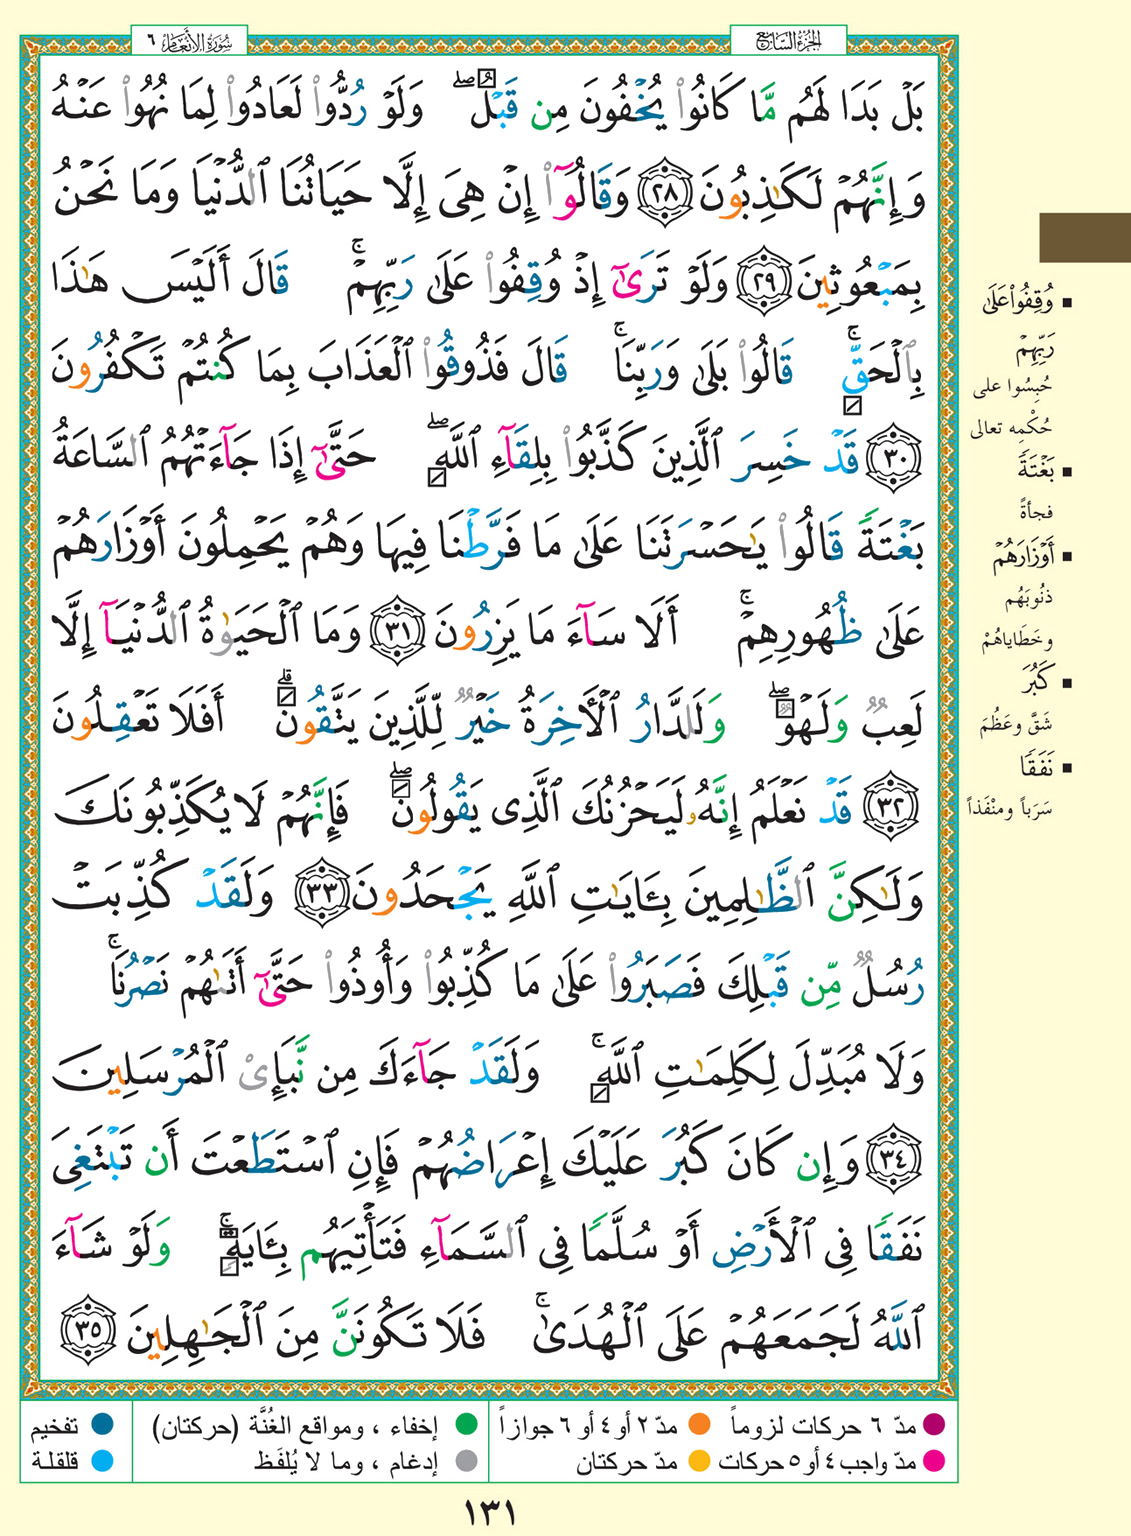 الجزء السابع
سورة الأنعام ٦
بَلْ بَدَا لَهُم مَّا كَانُوا۟ يُخْفُونَ مِن قَبْلُ ۖ وَلَوْ رُدُّوا۟ لَعَادُوا۟ لِمَا نُهُوا۟ عَنْهُ
وَإِنَّهُمْ لَكَـٰذِبُونَ ٢٨ وَقَالُوٓا۟ إِنْ هِىَ إِلَّا حَيَاتُنَا ٱلدُّنْيَا وَمَا نَحْنُ
بِمَبْعُوثِينَ ٢٩ وَلَوْ تَرَىٰٓ إِذْ وُقِفُوا۟ عَلَىٰ رَبِّهِمْ ۚ قَالَ أَلَيْسَ هَـٰذَا
بِٱلْحَقِّ ۚ قَالُوا۟ بَلَىٰ وَرَبِّنَا ۚ قَالَ فَذُوقُوا۟ ٱلْعَذَابَ بِمَا كُنتُمْ تَكْفُرُونَ
٣٠ قَدْ خَسِرَ ٱلَّذِينَ كَذَّبُوا۟ بِلِقَآءِ ٱللَّهِ ۖ حَتَّىٰٓ إِذَا جَآءَتْهُمُ ٱلسَّاعَةُ
بَغْتَةً قَالُوا۟ يَـٰحَسْرَتَنَا عَلَىٰ مَا فَرَّطْنَا فِيهَا وَهُمْ يَحْمِلُونَ أَوْزَارَهُمْ
عَلَىٰ ظُهُورِهِمْ ۚ أَلَا سَآءَ مَا يَزِرُونَ ٣١ وَمَا ٱلْحَيَوٰةُ ٱلدُّنْيَآ إِلَّا
لَعِبٌ وَلَهْوٌ ۖ وَلَلدَّارُ ٱلْـَٔاخِرَةُ خَيْرٌ لِّلَّذِينَ يَتَّقُونَ ۗ أَفَلَا تَعْقِلُونَ
٣٢ قَدْ نَعْلَمُ إِنَّهُۥ لَيَحْزُنُكَ ٱلَّذِى يَقُولُونَ ۖ فَإِنَّهُمْ لَا يُكَذِّبُونَكَ
وَلَـٰكِنَّ ٱلظَّـٰلِمِينَ بِـَٔايَـٰتِ ٱللَّهِ يَجْحَدُونَ ٣٣ وَلَقَدْ كُذِّبَتْ
رُسُلٌ مِّن قَبْلِكَ فَصَبَرُوا۟ عَلَىٰ مَا كُذِّبُوا۟ وَأُوذُوا۟ حَتَّىٰٓ أَتَىٰهُمْ نَصْرُنَا ۚ
وَلَا مُبَدِّلَ لِكَلِمَـٰتِ ٱللَّهِ ۚ وَلَقَدْ جَآءَكَ مِن نَّبَإِى۟ ٱلْمُرْسَلِينَ
٣٤ وَإِن كَانَ كَبُرَ عَلَيْكَ إِعْرَاضُهُمْ فَإِنِ ٱسْتَطَعْتَ أَن تَبْتَغِىَ
نَفَقًا فِى ٱلْأَرْضِ أَوْ سُلَّمًا فِى ٱلسَّمَآءِ فَتَأْتِيَهُم بِـَٔايَةٍ ۚ وَلَوْ شَآءَ
ٱللَّهُ لَجَمَعَهُمْ عَلَى ٱلْهُدَىٰ ۚ فَلَا تَكُونَنَّ مِنَ ٱلْجَـٰهِلِينَ ٣٥
وُقِفُوا۟ عَلَىٰ
رَبِّهِمْ
حُبِسُوا على
حُكْمِه تعالى
بَغْتَةً
فجأةً
أَوْزَارَهُمْ
ذنُوبَهُم
وخَطَاياهُمْ
كَبُرَ
شَقَّ وعَظُمَ
نَفَقًا
سَرَباً ومنْفَذاً
مدّ ٦ حركات لزوماً مدّ ٢ أو ٤ أو ٦ جوازاً إخفاء ، ومواقع الغُنَّة (حركتان) تفخيم
مدّ واجب ٤ أو ٥ حركات مدّ حركتان إدغام ، وما لا يُلفَظ قلقلة
١٣١